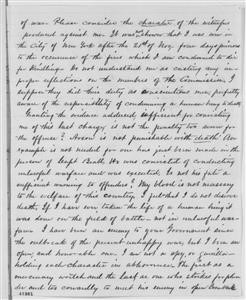 of war. Please consider the character of the witnesses
produced against me. It was shown that I was now in
the City of New York after the 28th of Nov. four days previous
to the occurrence of the fires which I am condemned to die
for kindling. Do not understand me as casting any im-
proper reflections on the members of the Commission, I
suppose they did their duty as conscientious men properly
aware of the responsibility of condemning a human being to death
Granting the evidence adduced sufficient for convicting
me of this last charge is not the penalty too severe for
the offence? Arson is not punishable with death. An
example is not needed for one has just been made in the
person of Capt Beall. He was convicted of conducting
unlawful warfare and was executed. Is not his fate a
sufficient warning to offenders? My blood is not necessary
to the welfare of this country, & yet that I do not deserve
death. If I have ever taken the life of a human being it
was done on the field of battle - not in unlawful war-
fare. I have been an enemy to your Government since
the outbreak of the present unhappy war but I have been an
open and honorable one. I am not a spy, or guerilla -
holding each character in abhorrence. The first as a
mercenary wretch and the last as one who strikes for plun-
der and too cowardly to meet his enemy in open
41981